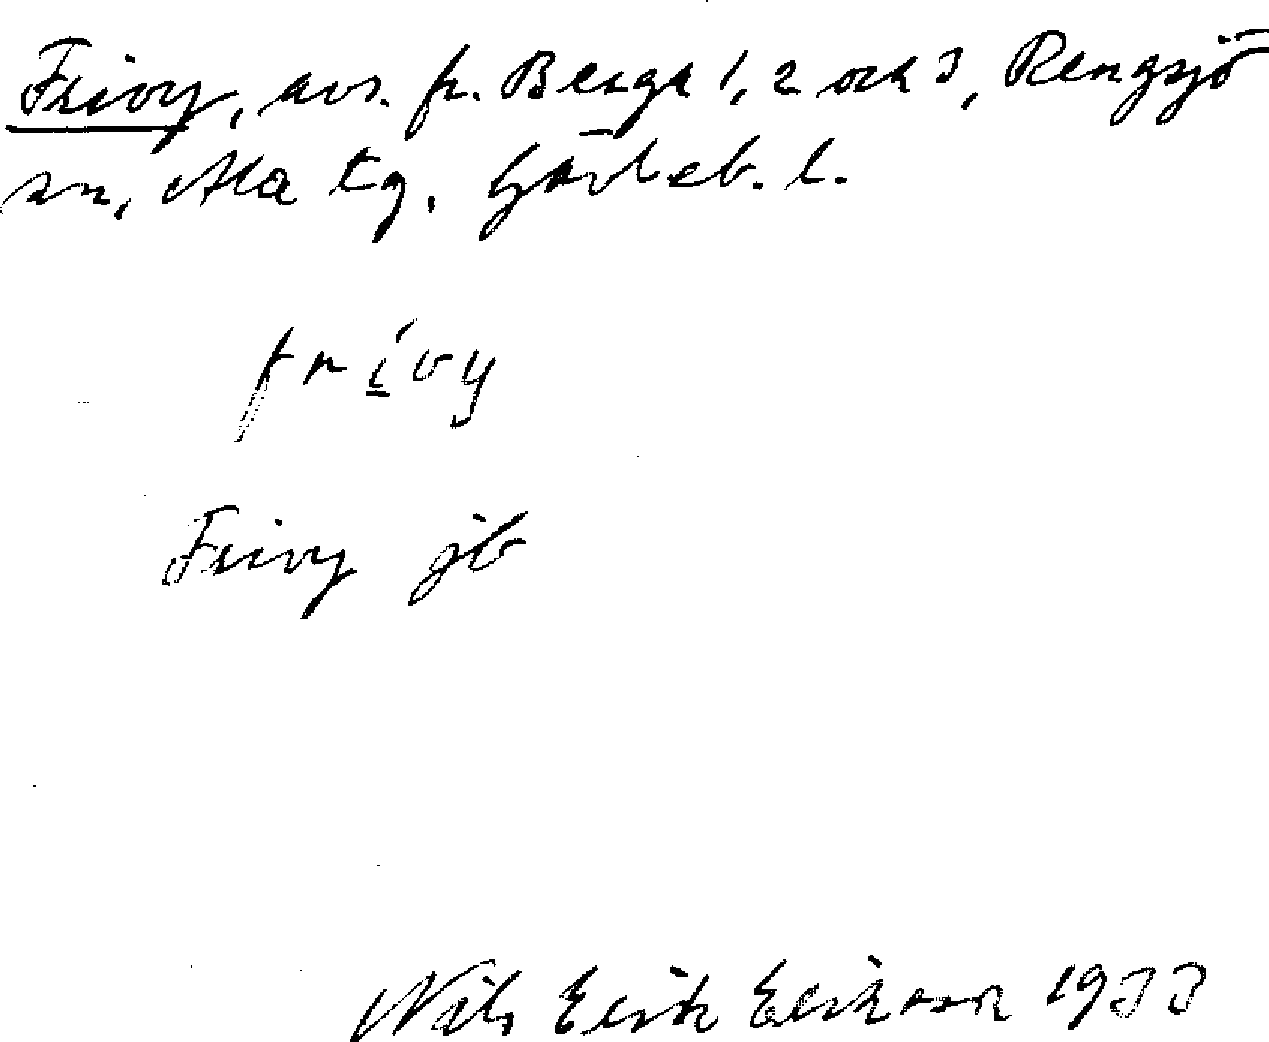 Frivy, avs. fr. Berga 1, 2 och 3, Rengsjö
sn, Ala tg. Gävleb. l.
frívy
Frivy jb
Nils Erik Erikson 1933